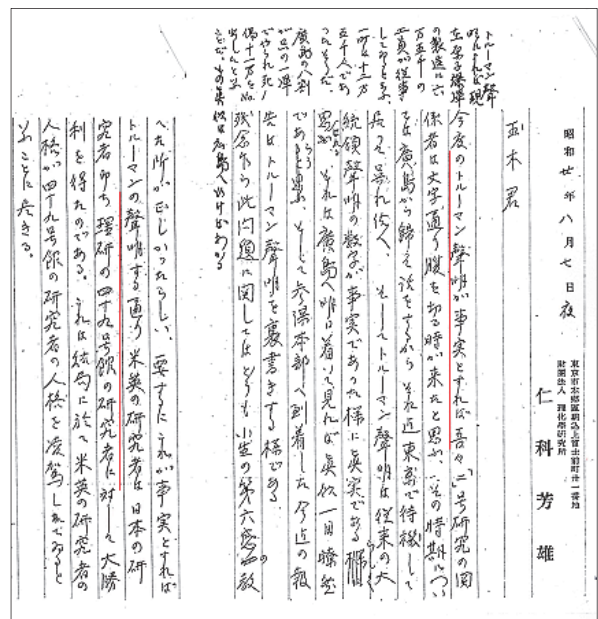 昭和廿年八月七日夜
東京市本郷區駒込上富士前町卅一番地
財團法人 理化學研究所
仁科芳雄
玉木君
今度のトルーマン聲明が事実とすれば吾々「ニ」号研究の関
係者は文字通り腹を切る時が来たと思ふ。その時期につい
ては廣島から歸って話をするから、それ迄東京で待機して
居って呉れ給へ。そしてトルーマン聲明は従来の大
統領聲明の数字が事実であった様に眞実であるらしく
思はれる。それは廣島へ明日着いて見れば眞偽一目瞭然
であらうと思ふ。そして参謀本部へ到着した今迄の報
告はトルーマン聲明を裏書きする様である。
残念ながら此問題に関してはどうも小生の第六感の教
へた所が正しかったらしい。要するにこれが事実とすれば
トルーマンの聲明する通り米英の研究者は日本の研
究者即ち理研の四十九号館の研究者に対して大勝
利を得たのである。これは結局に於て米英の研究者の
人格が四十九号館の研究者の人格を凌駕してゐると
いふことに尽きる。
トルーマン聲
明によれば現
在原子爆弾
の製造に六
万五千の
工員が従事
してゐると云ふ
五千人であ
ったそうだ
廣島の八割
が只の一弾
でやられ死